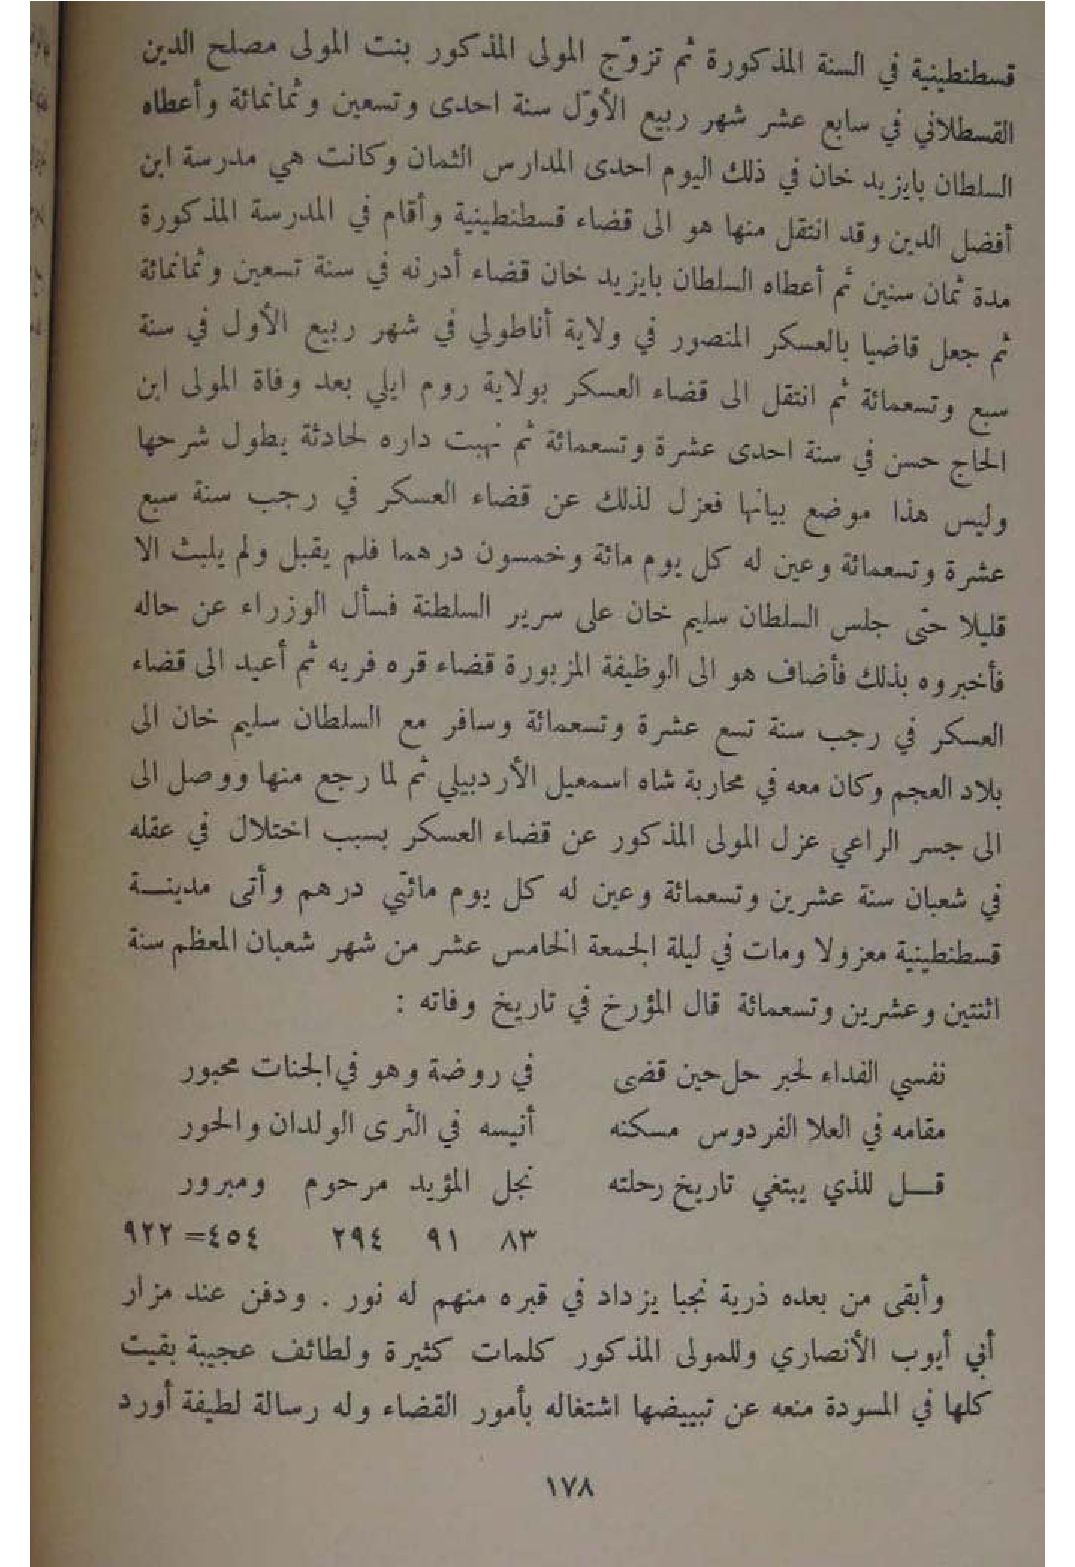 قسطنطينية في السنة المذكورة ثم تزوّج المولى المذكور بنت المولى مصلح الدين
القسطلاني في سابع عشر شهر ربيع الأوّل سنة احدى وتسعين وثمانمائة وأعطاه
السلطان بايزيد خان في ذلك اليوم احدى المدارس الثمان وكانت هي مدرسة ابن
أفضل الدين وقد انتقل منها هو الى قضاء قسطنطينية وأقام في المدرسة المذكورة
مدة ثمان سنين ثم أعطاه السلطان بايزيد خان قضاء أدرنه في سنة تسعين وثمانمائة
ثم جعل قاضيا بالعسكر المنصور في ولاية أناطولي في شهر ربيع الأول في سنة
سبع وتسعمائة ثم انتقل الى قضاء العسكر بولاية روم ايلي بعد وفاة المولى ابن
الحاج حسن في سنة احدى عشرة وتسعمائة ثم نهبت داره لحادثة يطول شرحها
وليس هذا موضع بيانها فعزل لذلك عن قضاء العسكر في رجب سنة سبع
عشرة وتسعمائة وعين له كل يوم مائة وخمسون درهما فلم يقبل ولم يلبث الا
قليلا حتّى جلس السلطان سليم خان على سرير السلطنة فسأل الوزراء عن حاله
فأخبروه بذلك فأضاف هو الى الوظيفة المزبورة قضاء قره فريه ثم أعيد الى قضاء
العسكر في رجب سنة تسع عشرة وتسعمائة وسافر مع السلطان سليم خان الى
بلاد العجم وكان معه في محاربة شاه اسمعيل الأردبيلي ثم لما رجع منها ووصل الى
الى جسر الراعي عزل المولى المذكور عن قضاء العسكر بسبب اختلال في عقله
في شعبان سنة عشرين وتسعمائة وعين له كل يوم مائتي درهم وأتى مدينـــة
قسطنطينية معزولا ومات في ليلة الجمعة الخامس عشر من شهر شعبان المعظم سنة
اثنتين وعشرين وتسعمائة قال المؤرخ في تاريخ وفاته :
نفسي الفداء لحبر حل حين قضى في روضة وهو في الجنات محبور
مقامه في العلا الفردوس مسكنه أنيسه في الثرى الولدان والحور
قـــل للذي يبتغي تاريخ رحلته نجل المؤيد مرحوم ومبرور
٨٣ ٩١ ٢٩٤ ٤٥٤= ٩٢٢
وأبقى من بعده ذرية نجبا يزداد في قبره منهم له نور . ودفن عند مزار
أبي أيوب الأنصاري وللمولى المذكور كلمات كثيرة ولطائف عجيبة بقيت
كلها في المسودة منعه عن تبييضها اشتغاله بأمور القضاء وله رسالة لطيفة أورد
١٧٨